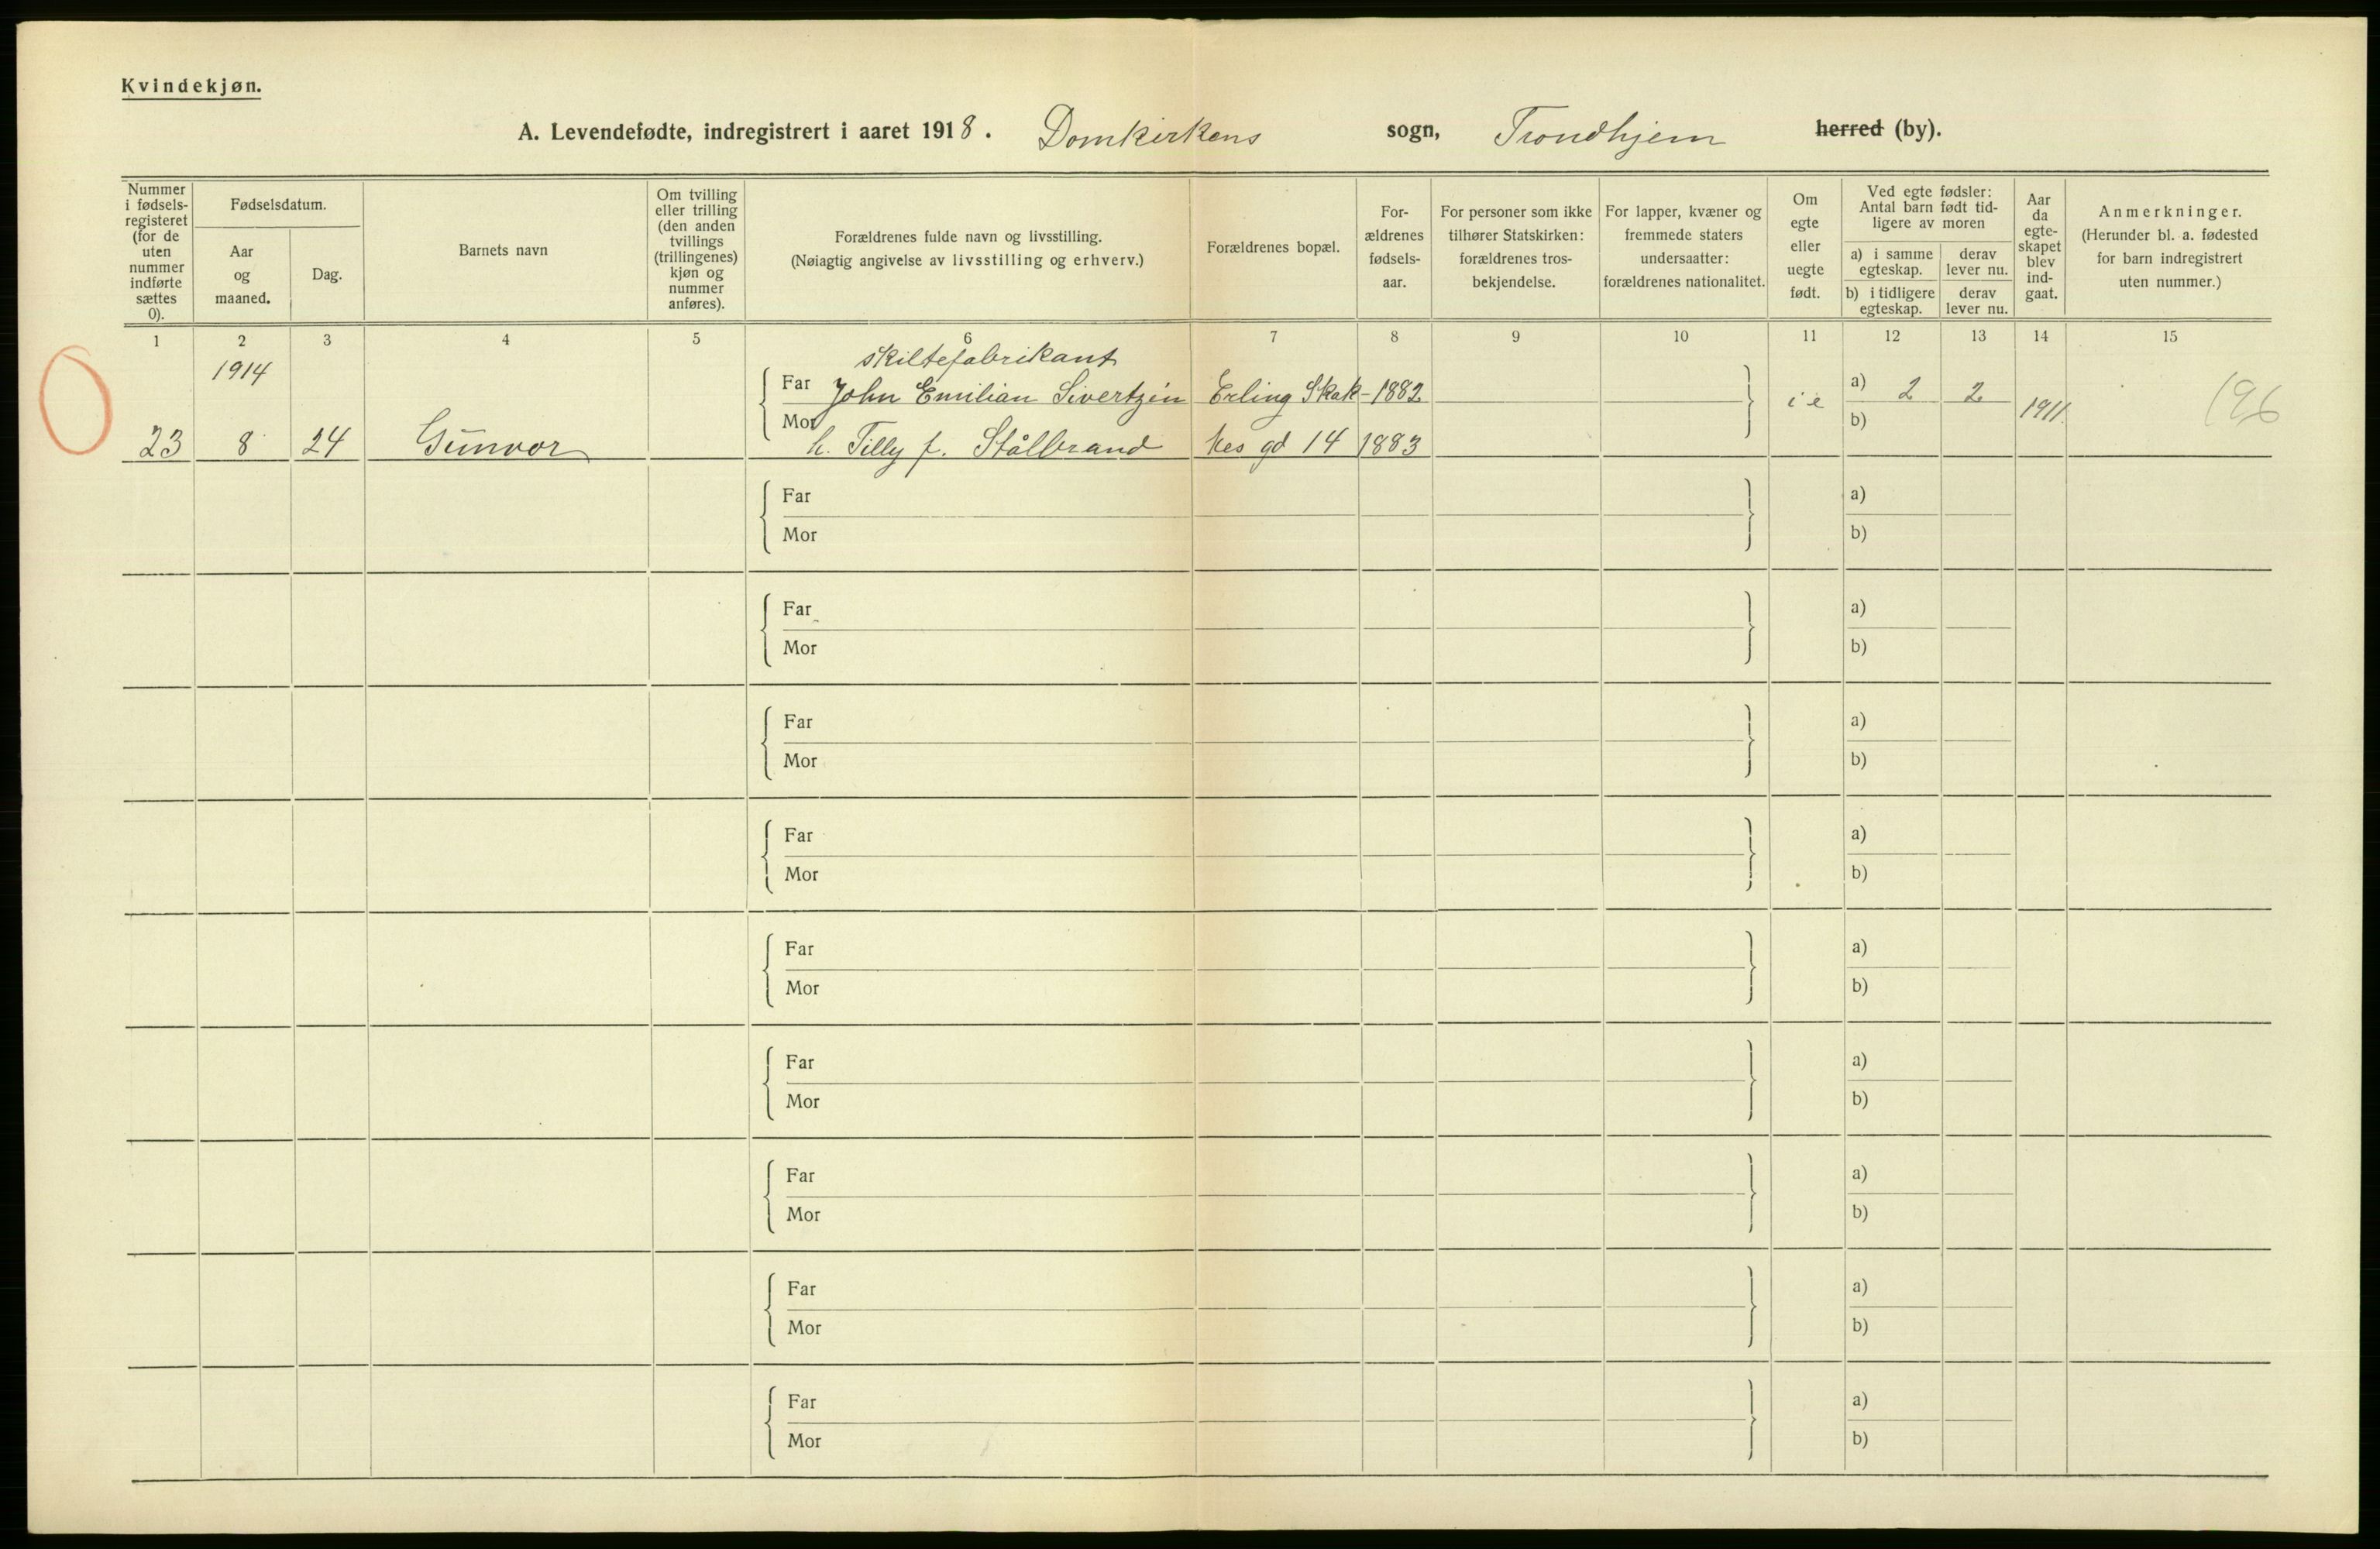 Kvindekjøn.
A. Levendefødte, indregistrert i aaret 1918. Domkirkens sogn, Trondhjem herred (by).
Nummer i fødsels-registeret (for de uten nummer indførte sættes 0).
Fødselsdatum.
Aar og maaned.
Dag.
Barnets navn
Om tvilling eller trilling (den anden tvillings (trillingenes) kjøn og nummer anføres).
Forældrenes fulde navn og livsstilling.
(Nøiagtig angivelse av livsstilling og erhverv.)
Forældrenes bopæl.
For-ældrenes fødsels-aar.
For personer som ikke tilhører Statskirken: forældrenes tros-bekjendelse.
For lapper, kvæner og fremmede staters undersaatter: forældrenes nationalitet.
Om egte eller uegte født.
Ved egte fødsler: Antal barn født tid-ligere av moren
a) i samme egteskap.
derav lever nu.
b) i tidligere egteskap.
derav lever nu.
Aar da egte-skapet blev ind-gaat.
Anmerkninger.
(Herunder bl. a. fødested for barn indregistrert uten nummer.)
1 2 3 4 5 6 7 8 9 10 11 12 13 14 15
1914 skiltefabrikant
Far John Emilian Sivertzen Erling Skak- 1882 i e a) 2 2 1911 196
23 8 24 Gunvor Mor h. Tilly f. Stålbrand kes gd 14 1883 b)
Far a)
Mor b)
Far a)
Mor b)
Far a)
Mor b)
Far a)
Mor b)
Far a)
Mor b)
Far a)
Mor b)
Far a)
Mor b)
Far a)
Mor b)
Far a)
Mor b)